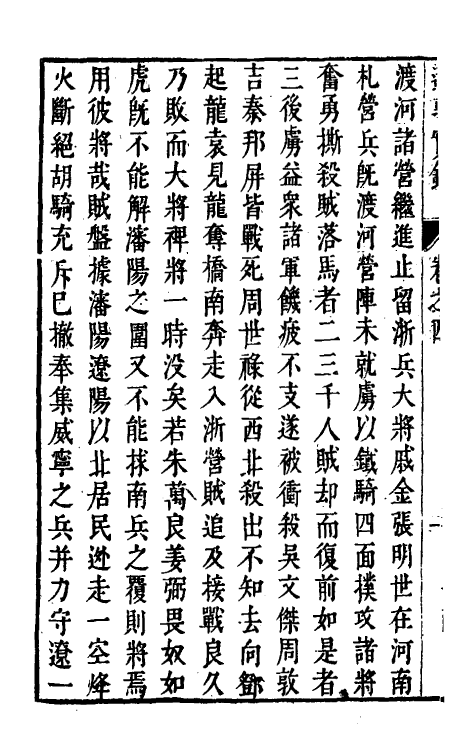 渡河諸營繼進止留浙兵大將戚金張明世在河南
札營兵旣渡河營陣未就虜以鐵騎四面撲攻諸將
奮勇撕殺賊落馬者二三千人賊却而復前如是者
三後虜益衆諸軍饑疲不支遂被衝殺吳文傑周敦
吉秦邦屏皆戰死周世祿從西北殺出不知去向鄧
起龍袁見龍奪橋南奔走入浙營賊追及接戰良久
乃敗而大將裨將一時没矣若朱萬良姜弼畏奴如
虎旣不能解瀋陽之圍又不能救南兵之覆則將焉
用彼將哉賊盤據瀋陽遼陽以北居民逊走一空烽
火斷絕胡騎充斥已撤奉集威寧之兵并力守遼一